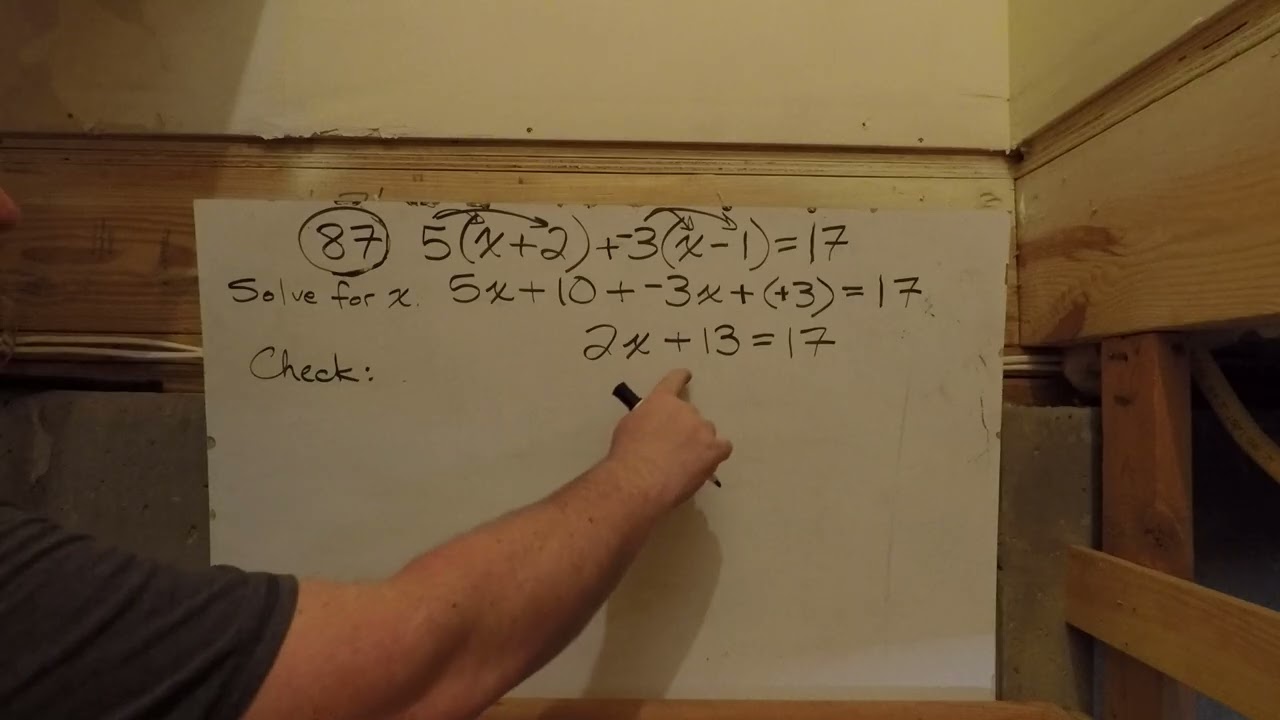 87 5(x+2)+-3(x-1)=17
Solve for x. 5x+10+-3x+(+3)=17
2x+13=17
Check: